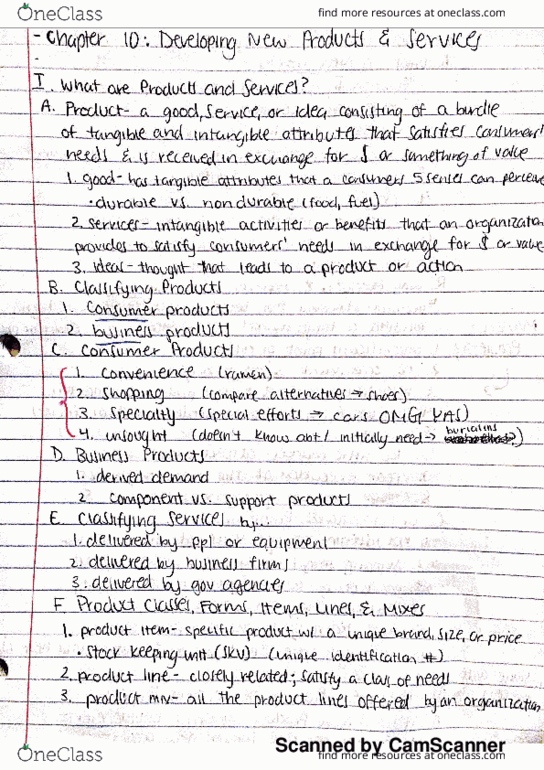 OneClass
find more resources at oneclass.com
- Chapter 10: Developing New Products & Services
I. What are Products and Services?
A. Product- a good, service, or idea consisting of a bundle
of tangible and intangible attributes that satisfies consumers'
needs & is received in exchange for $ or something of value
1. good- has tangible attributes that a consumers 5 senses can perceive
• durable vs. nondurable (food, fuel)
2. services- intangible activities or benefits that an organization
provides to satisfy consumers' needs in exchange for $ or value
3. ideas- thought that leads to a product or action
B. Classifying Products
1. Consumer products
2. business products
C. Consumer Products
1. convenience (ramen)
2. shopping (compare alternatives → shoes)
3. specialty (special efforts → cars OMG YAS)
4. unsought (doesn't know abt / initially need →
D. Business Products
1. derived demand
2. component vs. support products
E. Classifying Services by..
1. delivered by ppl or equipment
2. delivered by business firms
3. delivered by gov agencies
F. Product Classes, Forms, Items, Lines, & Mixes
1. product item- specific product w/ a unique brand, size, or price
• Stock keeping unit (SKU) (unique identification #)
2. product line- closely related; satisfy a class of needs
3. product mix- all the product lines offered by an organization
Scanned by CamScanner
OneClass
find more resources at oneclass.com